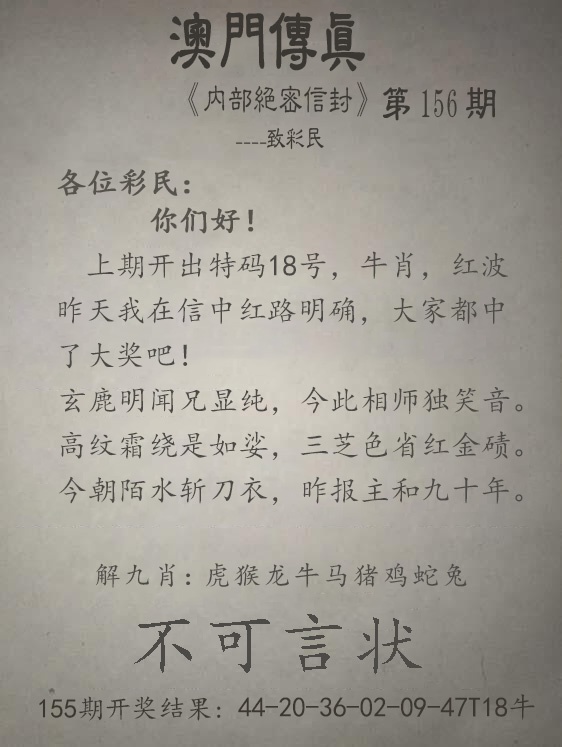 澳門傳真
《内部絕密信封》第156期
----致彩民
各位彩民：
你们好！
上期开出特码18号，牛肖，红波
昨天我在信中红路明确，大家都中
了大奖吧！
玄鹿明闻兄显纯，今此相师独笑音。
高纹霜绕是如娑，三芝色省红金碛。
今朝陌水斩刀衣，昨报主和九十年。
解九肖：虎猴龙牛马猪鸡蛇兔
不可言状
155期开奖结果：44-20-36-02-09-47T18牛